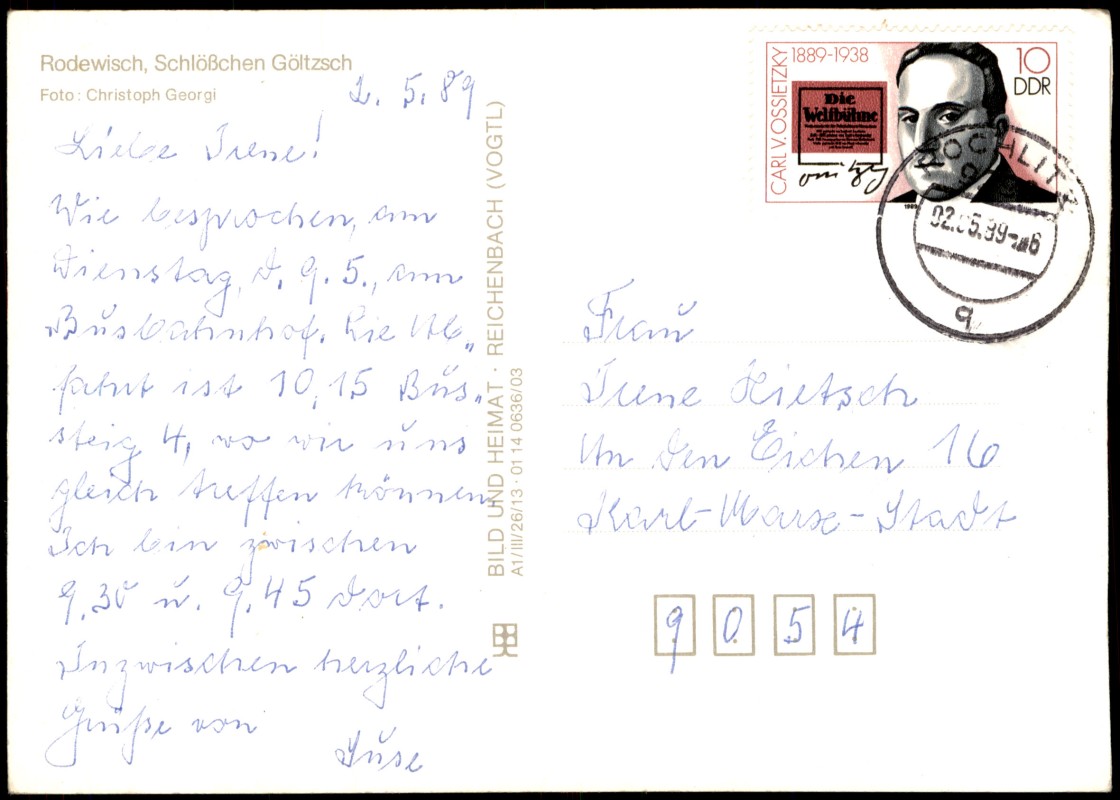 Rodewisch, Schlößchen Göltzsch
Foto: Christoph Georgi
2. 5. 89
Liebe Irene!
Wie besprochen, am
Dienstag, d. 9. 5., am
Busbahnhof. Die Ab„
fahrt ist 10,15 Bus„
steig 4, wo wir uns
gleich treffen können.
Ich bin zwischen
9.30 u. 9.45 dort.
Inzwischen herzliche
Grüße von
Suse
BILD UND HEIMAT · REICHENBACH (VOGTL)
A1/III/26/13 · 01 14 0636/03
CARL V. OSSIETZKY
1889-1938
10
DDR
Die
Weltbühne
ROCHLITZ
02.05.89
a
Frau
Irene Hietsch
An den Eichen 16
Karl-Marx-Stadt
9 0 5 4